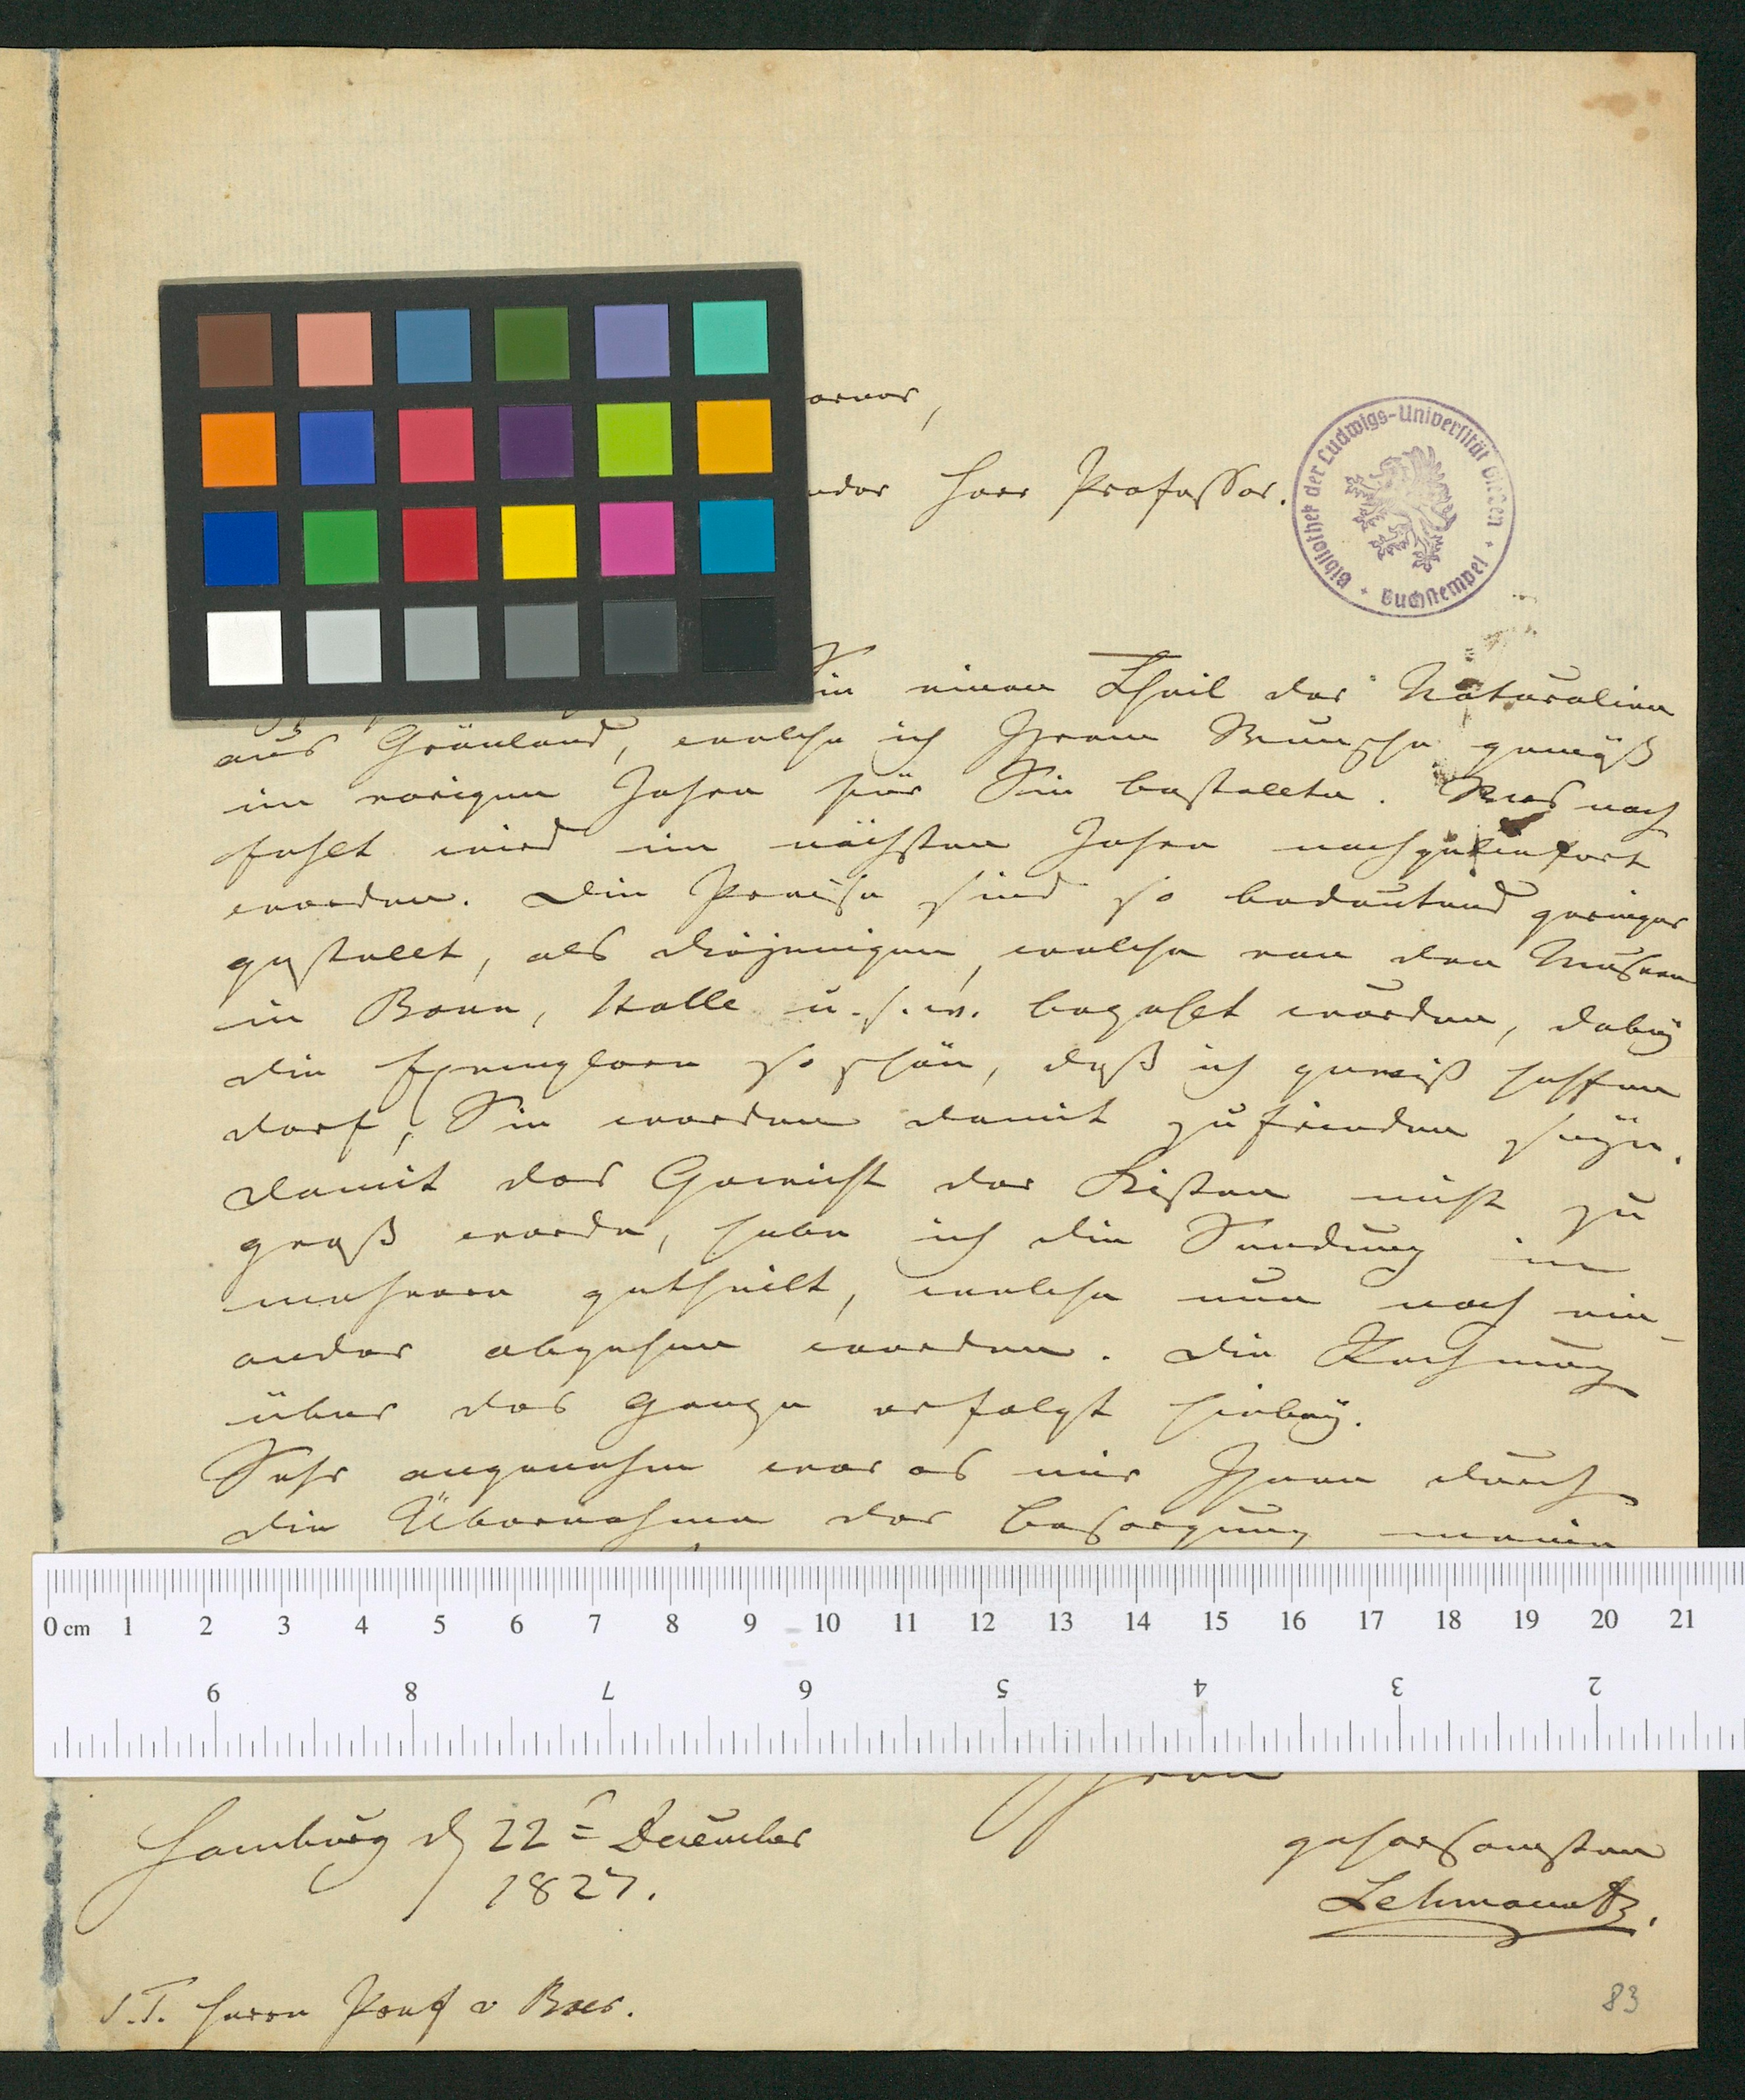 Herr Professor.
Bibliothek der Ludwigs-Universität Gießen
Buchstempel
Sie einen Theil der Naturalien
aus Grönland, welche ich Ihrem Wunsche gemäß
im vorigen Jahre für Sie bestellte. Was noch
fehlt wird im nächsten Jahre nachgeliefert
werden. Die Preise sind so bedeutend geringer
gestellt, als diejenigen, welche von den Museen
in Bonn, Halle u. s. w. bezahlt werden, dabey
die Exemplare so schön, daß ich gewiß hoffen
darf, Sie werden damit zufrieden seyn.
Damit das Gewicht der Kisten nicht zu
groß werde, habe ich die Sendung in
mehrere getheilt, welche nun nach ein-
ander abgehen werden. Die Rechnung
über das Ganze erfolgt hiebey.
Sehr angenehm war es mir Ihnen durch
die Übernahme der Besorgung
0 cm 1 2 3 4 5 6 7 8 9 10 11 12 13 14 15 16 17 18 19 20 21
9 8 7 6 5 4 3 2
Ihren
Hamburg d 22= December
1827.
gehorsamsten
Lehmann
S.T. Herrn Prof v Baer.
83